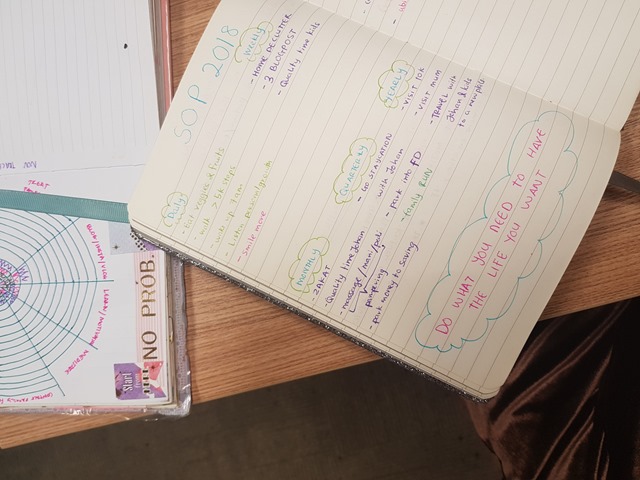 SOP 2018
Daily
- Eat veggies & fruits
- walk > 5k steps
- wake up 5am
- Listen personal growth
- Smile more
WEEKLY
- Home DECLUTTER
- 3 BLOGPOST
- Quality time kids
MONTHLY
- ZAKAT
- Quality time Johan
- massage/mani/pedi
pampering
- park money to saving
QUARTERLY
- GO STAYCATION
with Johan
- park into FD
- family RUN
YEARLY
- VISIT TOK
- VISIT MUM
- TRAVEL with
Johan & kids
to a new place
DO WHAT YOU NEED TO HAVE
THE LIFE YOU WANT
NO PROB.
Start